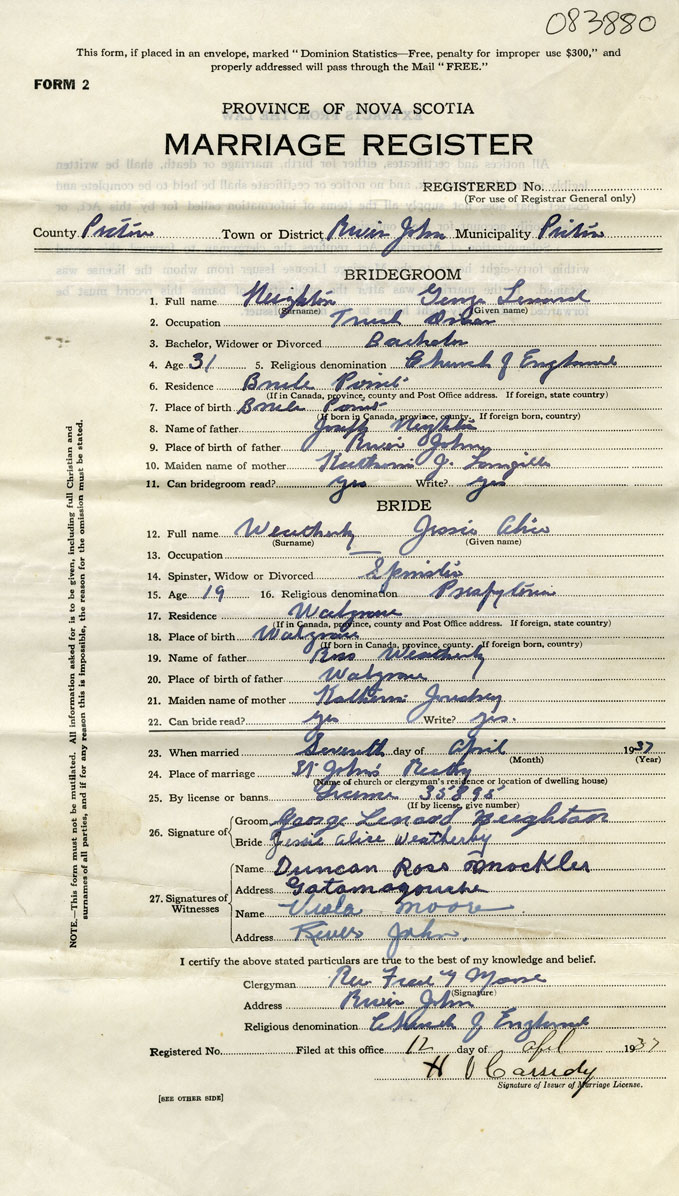 083880
This form, if placed in an envelope, marked "Dominion Statistics—Free, penalty for improper use $300," and
properly addressed will pass through the Mail "FREE."
FORM 2
PROVINCE OF NOVA SCOTIA
MARRIAGE REGISTER
REGISTERED No.
(For use of Registrar General only)
County Pictou Town or District River John Municipality Pictou
BRIDEGROOM
1. Full name George Lenard
(Surname) (Given name)
2. Occupation Truck Driver
3. Bachelor, Widower or Divorced Bachelor
4. Age 31 5. Religious denomination Church of England
6. Residence Brule Point
(If in Canada, province, county and Post Office address. If foreign, state country)
7. Place of birth Brule Point
(If born in Canada, province, county. If foreign born, country)
8. Name of father Joseph
9. Place of birth of father River John
10. Maiden name of mother J. Langille
11. Can bridegroom read? yes Write? yes
BRIDE
12. Full name Weatherby Jessie Alice
(Surname) (Given name)
13. Occupation —
14. Spinster, Widow or Divorced Spinster
15. Age 19 16. Religious denomination
17. Residence Watgrave
(If in Canada, province, county and Post Office address. If foreign, state country)
18. Place of birth Watgrave
(If born in Canada, province, county. If foreign born, country)
19. Name of father Ross Weatherby
20. Place of birth of father Watgrave
21. Maiden name of mother
22. Can bride read? yes Write? yes.
23. When married Seventh day of April 1937
(Month) (Year)
24. Place of marriage St John's Rectory
(Name of church or clergyman's residence or location of dwelling house)
25. By license or banns License 35895
(If by license, give number)
26. Signature of
Groom George Lenard
Bride Jessie Alice Weatherby
27. Signatures of Witnesses
Name Duncan Ross Mockler
Address Tatamagouche
Name Viola Moore
Address River John.
I certify the above stated particulars are true to the best of my knowledge and belief.
Clergyman Rev Fred Y Moore
(Signature)
Address River John
Religious denomination Church of England
Registered No. Filed at this office 12 day of April 1937
H V Cassidy
Signature of Issuer of Marriage License.
[SEE OTHER SIDE]
NOTE.—This form must not be mutilated. All information asked for is to be given, including full Christian and
surnames of all parties, and if for any reason this is impossible, the reason for the omission must be stated.